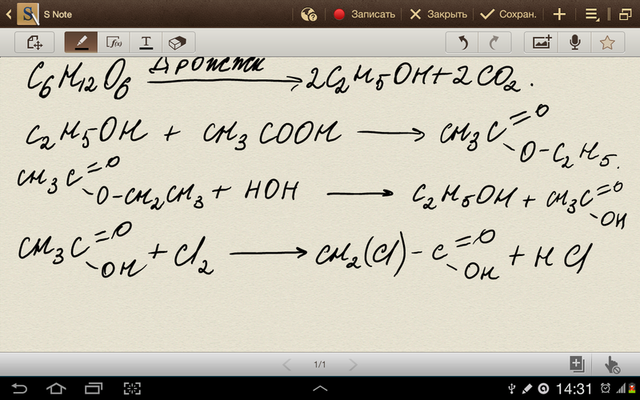 S Note
Записать
Закрыть
Сохран.
C₆H₁₂O₆ —дрожжи→ 2C₂H₅OH + 2CO₂.
C₂H₅OH + CH₃COOH → CH₃C=O-O-C₂H₅.
CH₃C=O-O-CH₂CH₃ + HOH → C₂H₅OH + CH₃C=O-OH
CH₃C=O-OH + Cl₂ → CH₂(Cl)-C=O-OH + HCl
1/1
14:31